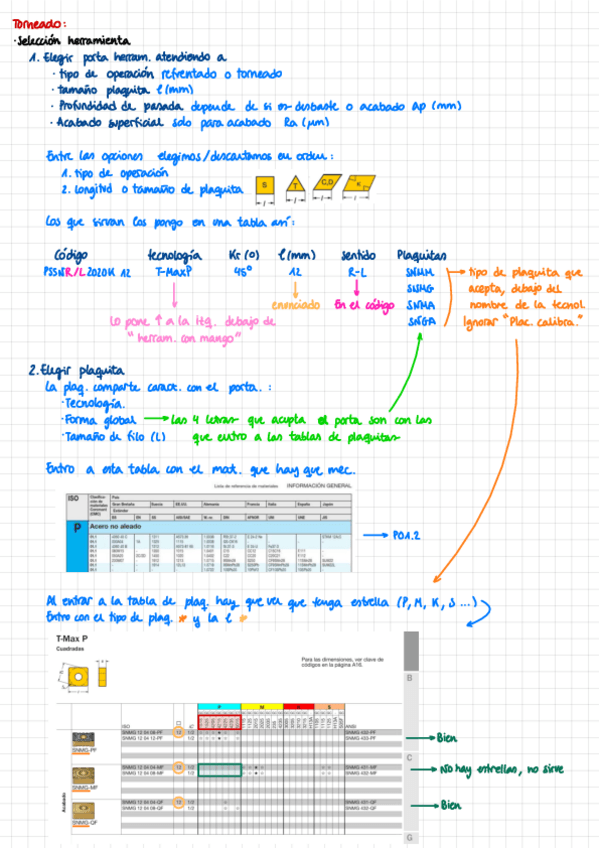 Torneado:
· Selección herramienta
1. Elegir porta herram. atendiendo a
· tipo de operación refrentado o torneado
· tamaño plaquita l (mm)
· Profundidad de pasada depende de si es desbaste o acabado ap (mm)
· Acabado superficial solo para acabado Ra (μm)
Entre las opciones elegimos/descartamos en orden:
1. tipo de operación
2. Longitud o tamaño de plaquita
S T C,D K
l l l l
Los que sirvan los pongo en una tabla así:
Código tecnología Kr (º) l (mm) sentido Plaquitas
PSSNR/L 2020K 12 T-MaxP 45º 12 R-L SNMM
SNMG
SNMA
SNGA
tipo de plaquita que
acepta, debajo del
nombre de la tecnol.
Ignorar "Plac. calibra."
enunciado
En el código
Lo pone ↑ a la izq. debajo de
"herram. con mango"
2. Elegir plaquita
La plaq. comparte caract. con el porta.:
· Tecnología.
· Forma global → las 4 letras que acepta el porta son con las
· Tamaño de filo (L) que entro a las tablas de plaquitas
Entro a esta tabla con el mat. que hay que mec.
Lista de referencia de materiales INFORMACIÓN GENERAL
ISO
País
Gran Bretaña Suecia EE.UU Alemania Francia Italia España Japón
P Acero no aleado
→ P01.2
Al entrar a la tabla de plaq. hay que ver que tenga estrella (P, M, K, S ...)
Entro con el tipo de plaq. * y la l *
T-Max P
Cuadradas
Para las dimensiones, ver clave de
códigos en la página A16.
B
P M K S
ISO ANSI
SNMG 12 04 08-PF 12 1/2 SNMG 432-PF
SNMG 12 04 12-PF 1/2 SNMG 433-PF
SNMG-PF
→ Bien
C
SNMG 12 04 04-MF 12 1/2 SNMG 431-MF
SNMG 12 04 08-MF 1/2 SNMG 432-MF
SNMG-MF
→ No hay estrellas, no sirve
Acabado
SNMG 12 04 04-QF 12 1/2 SNMG 431-QF
SNMG 12 04 08-QF 1/2 SNMG 432-QF
SNMG-QF
→ Bien
G